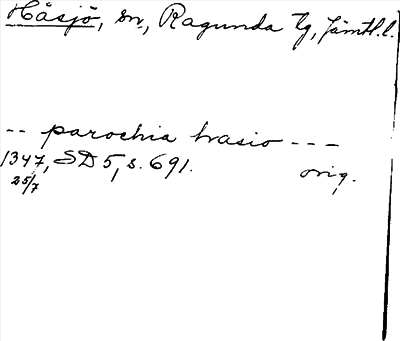 Håsjö, sn, Ragunda tg, Jämtl.l.
-- parochia hrasio ---
1347, SD 5, s. 691. orig.
25/7